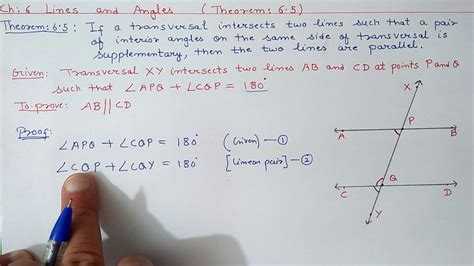 Ch: 6 Lines and Angles (Theorem: 6.5)
Theorem: 6.5: If a transversal intersects two lines such that a pair
of interior angles on the same side of transversal is
supplementary, then the two lines are parallel.
Given: Transversal XY intersects two lines AB and CD at points P and Q
such that ∠APQ + ∠CQP = 180°
To-prove: AB || CD
Proof:
∠APQ + ∠CQP = 180° (Given) — ①
∠CQP + ∠CQY = 180° [Linear pair] — ②
X
P
A
B
Q
C
D
Y